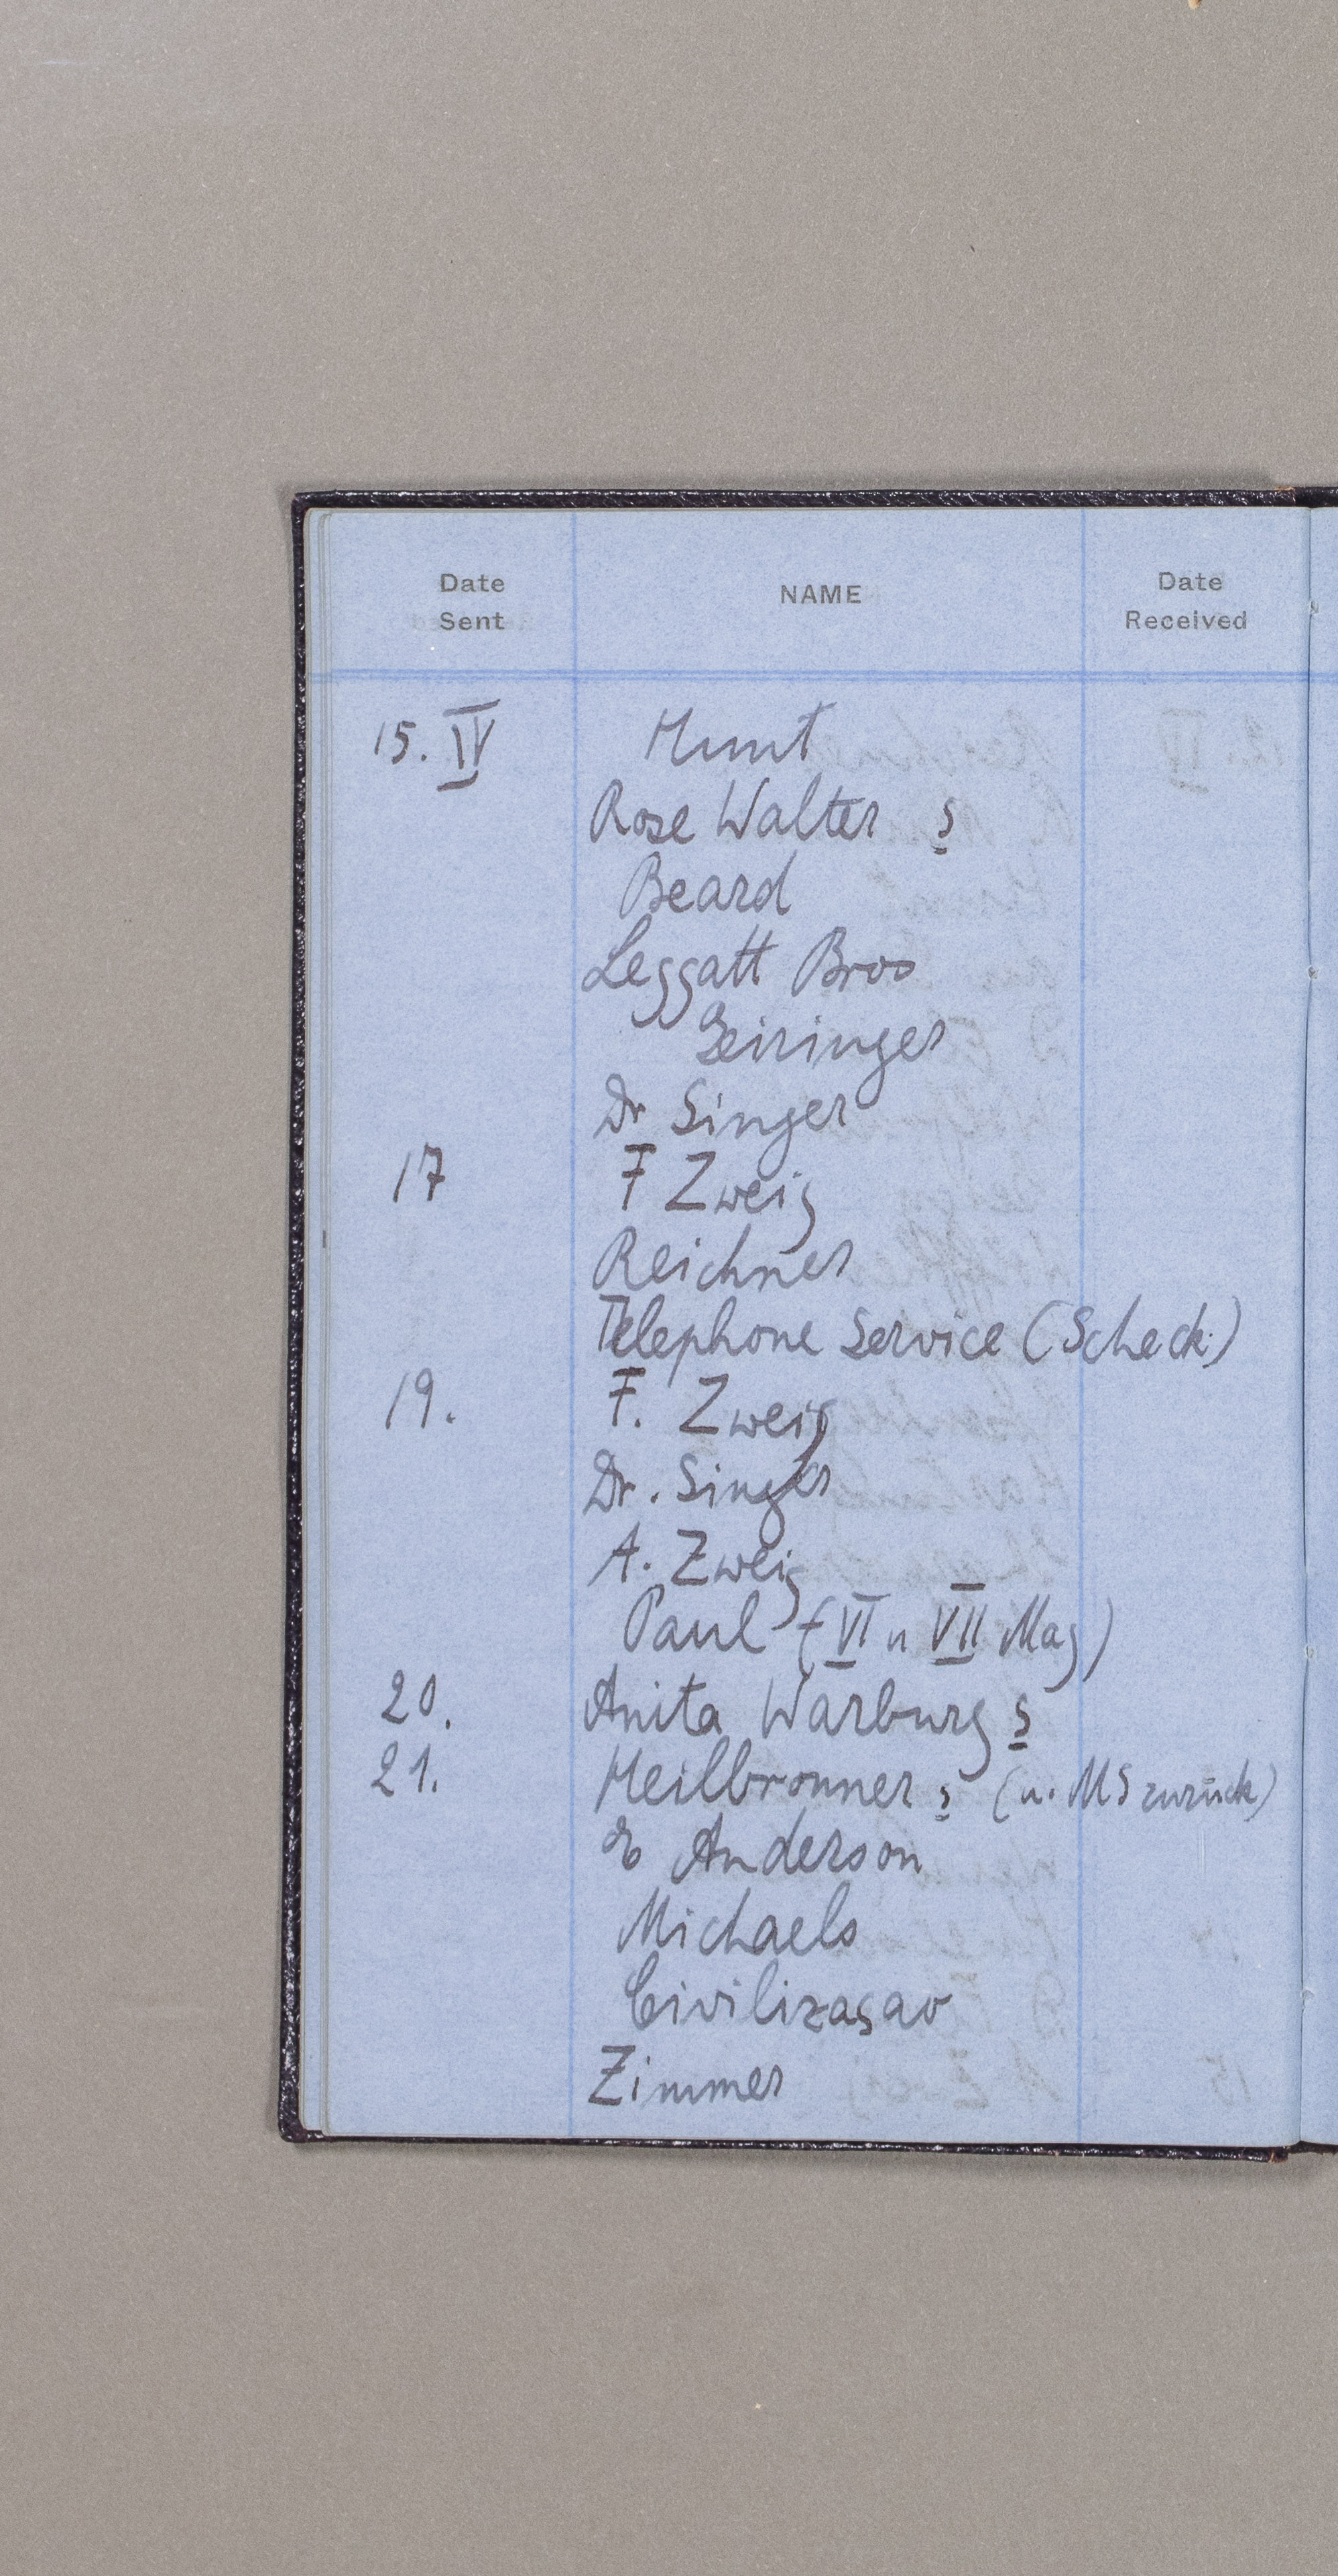 Date Sent NAME Date Received
15. IV Hunt
Rose Walter s
Beard
Leggatt Bros
Geiringer
Dr Singer
17 F Zweig
Reichner
Telephone Service (Scheck)
19. F. Zweig
Dr. Singer
A. Zweig
Paul (VI u VII Mag)
20. Anita Warburg s
21. Heilbronner s (u. MS zurück)
E Anderson
Michaels
Civilizaçao
Zimmer